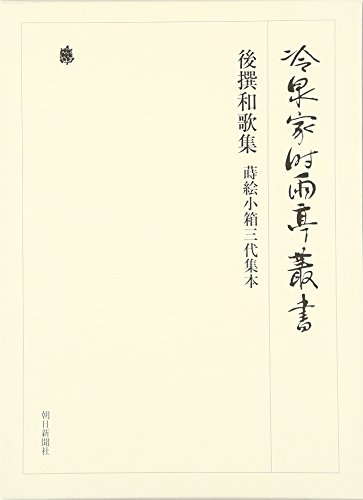 冷泉家时雨亭叢書
後撰和歌集 蒔絵小箱三代集本
朝日新聞社